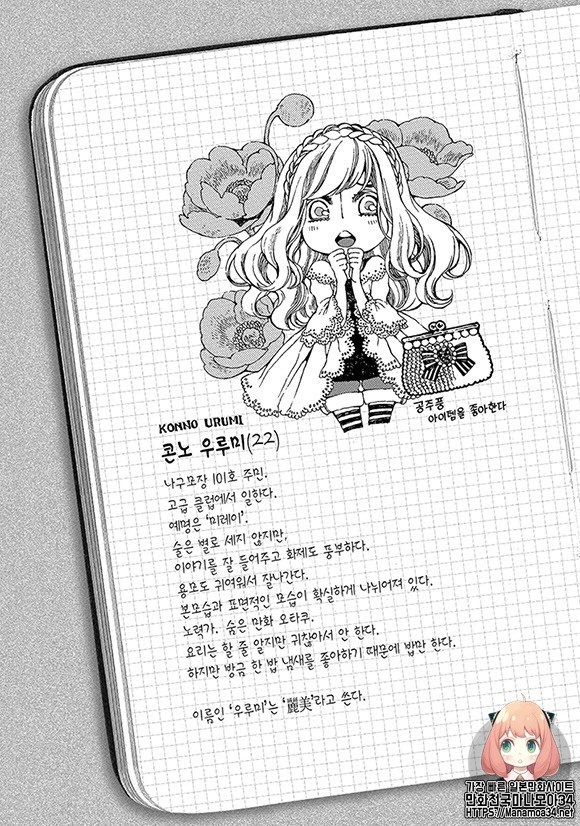 공주풍
아이템을 좋아한다
KONNO URUMI
콘노 우루미(22)
나구모장 101호 주민.
고급 클럽에서 일한다.
예명은 '미레이'.
술은 별로 세지 않지만,
이야기를 잘 들어주고 화제도 풍부하다.
용모도 귀여워서 잘나간다.
본모습과 표면적인 모습이 확실하게 나뉘어져 있다.
노력가. 숨은 만화 오타쿠.
요리는 할 줄 알지만 귀찮아서 안 한다.
하지만 방금 한 밥 냄새를 좋아하기 때문에 밥만 한다.
이름인 '우루미'는 '麗美'라고 쓴다.
가장 빠른 일본만화사이트
만화천국미나모아34
HTTPS://Manamoa34.net